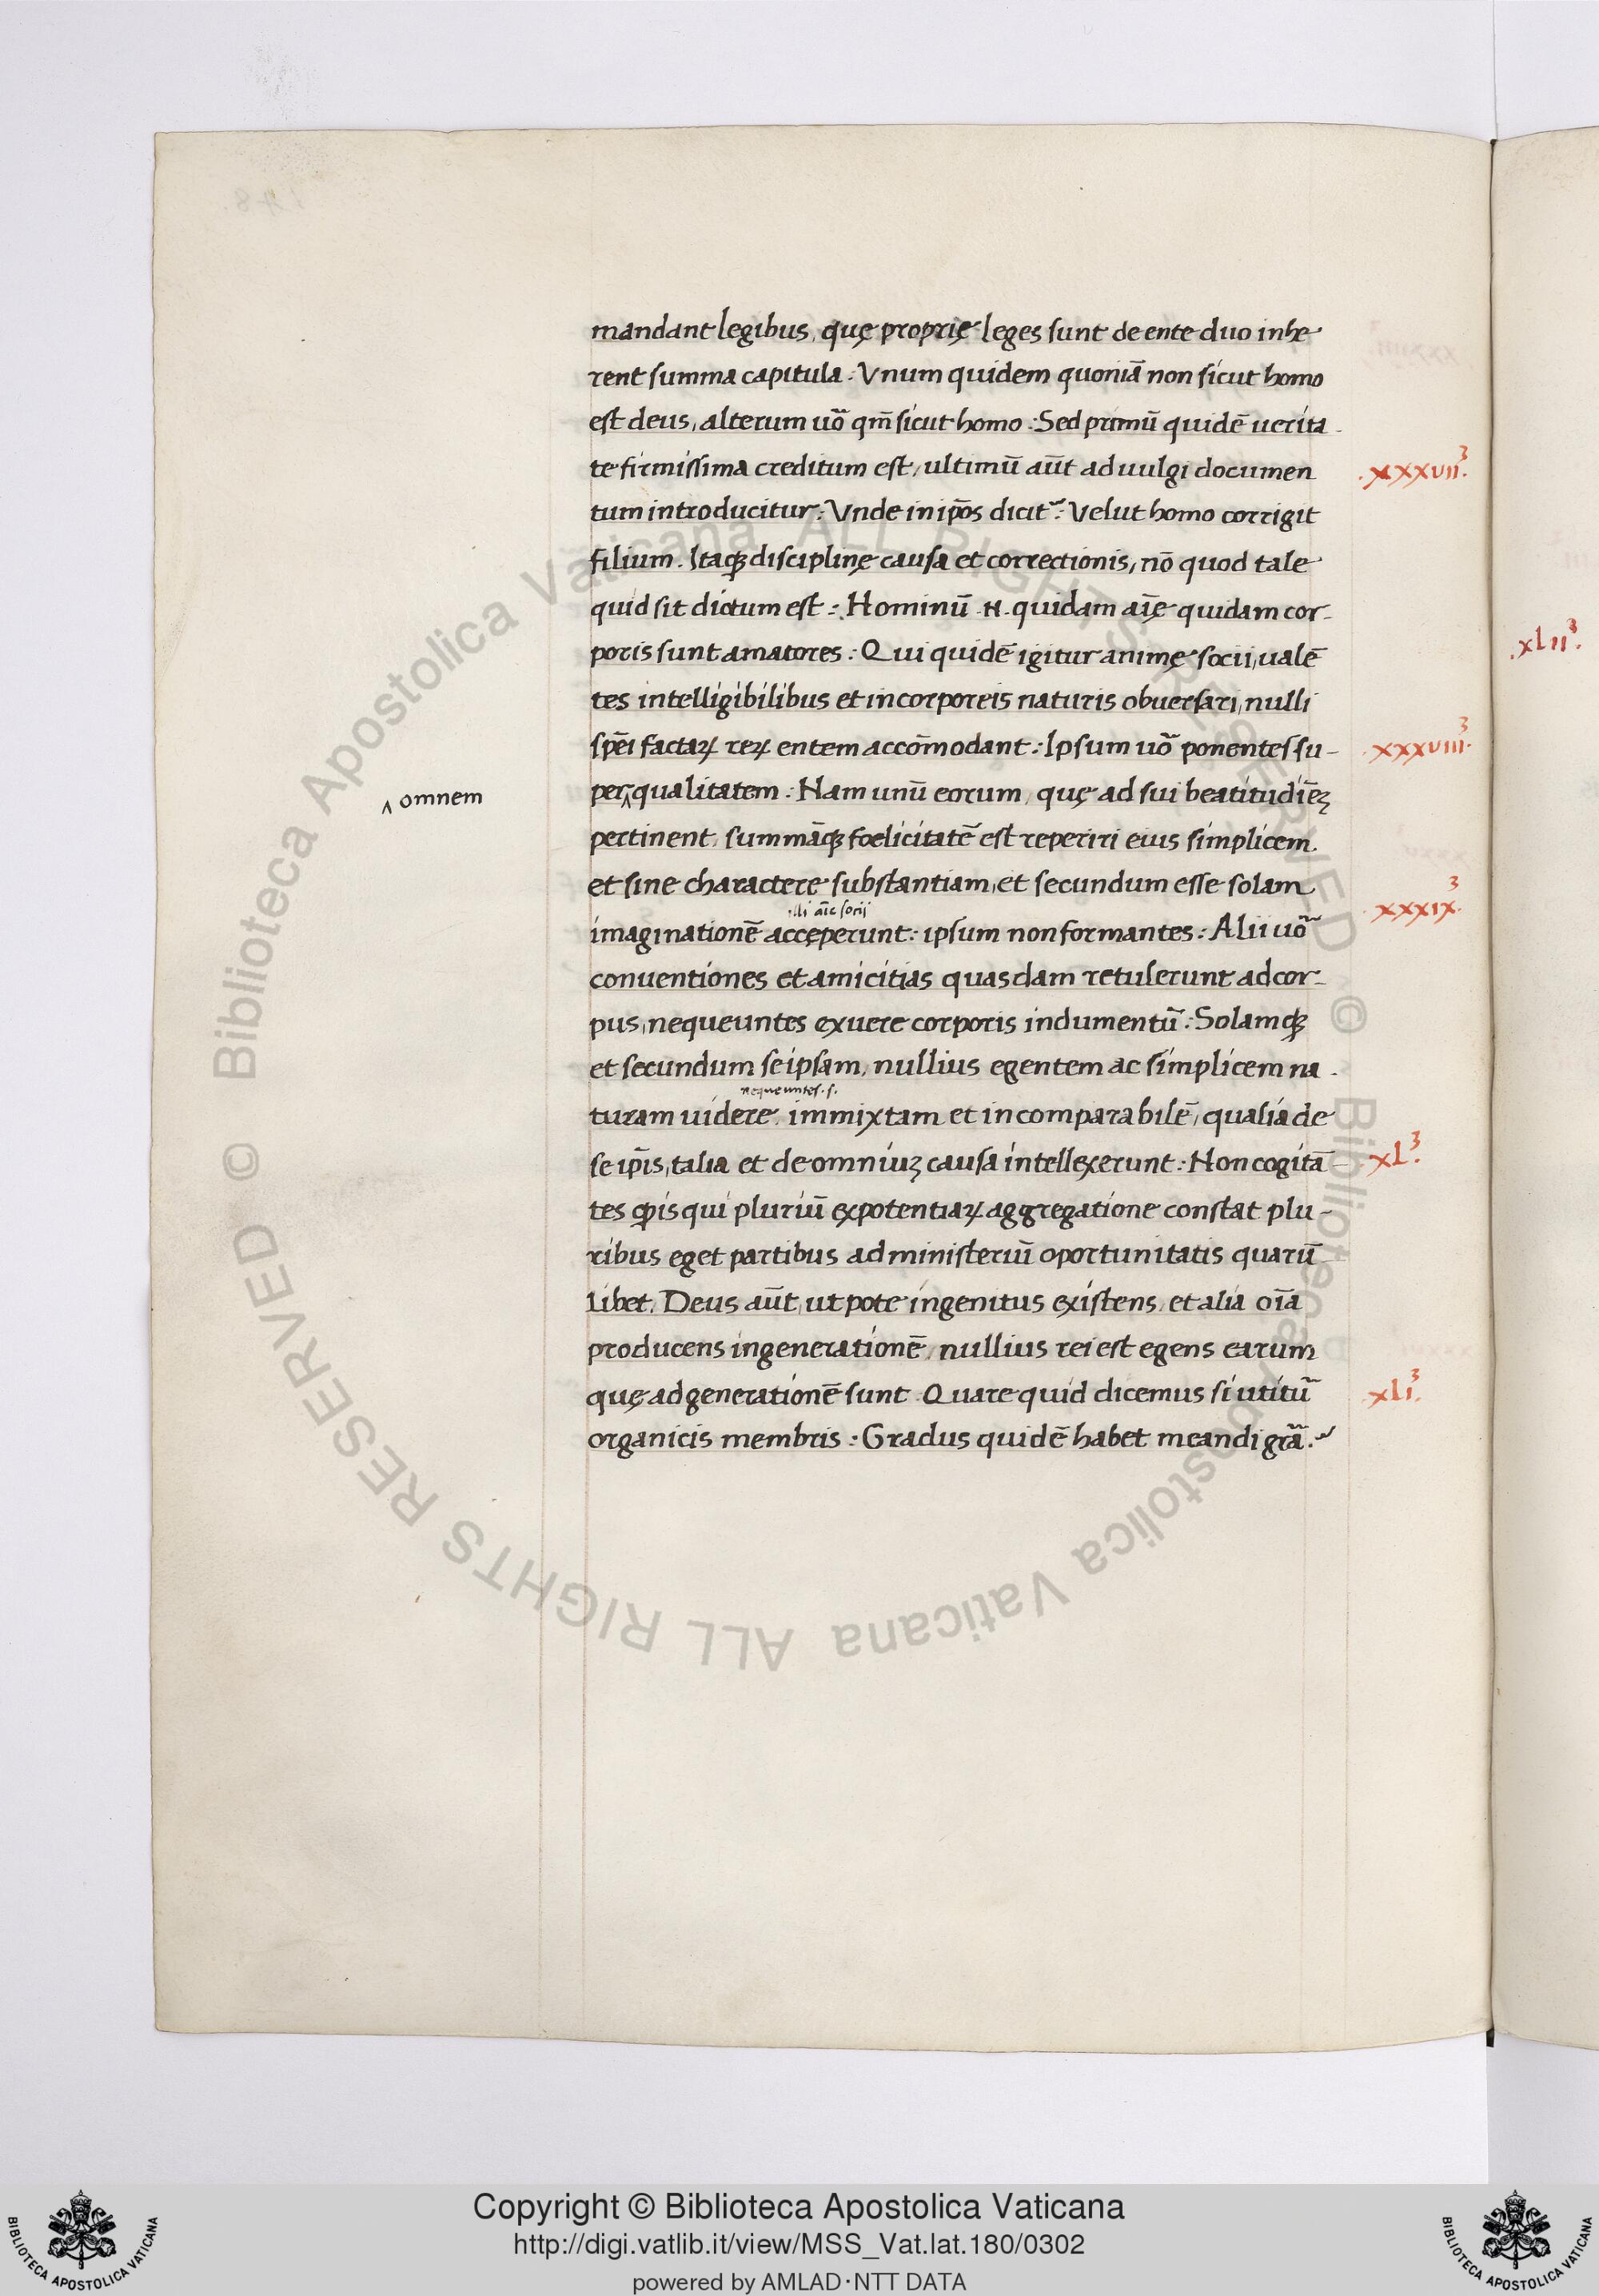 mandant legibus, quę proprię leges sunt de ente duo inhe
rent summa capitula: Vnum quidem quoniā non sicut homo
est deus, alterum uō qm̄ sicut homo: Sed primū quidē uerita-
te firmissima creditum est, ultimū aūt ad uulgi documen
.xxxvii³.
tum introducitur: Vnde in ip̄os dicit᷑: Velut homo corrigit
filium. Itaqꝫ disciplinę causa et correctionis, nō quod tale
quid sit dictum est: Hominū .N. quidam aīę quidam cor-
poris sunt amatores: Qui quidē igitur animę socii, ualē
.xlii³.
tes intelligibilibus et incorporeis naturis obuersari, nulli
sp̄ei factaꝝ reꝝ entem accōmodant: Ipsum uō ponentes su-
.xxxviii³.
per‸qualitatem: Nam unū eorum, quę ad sui beatitudīēꝫ
‸ omnem
pertinent, summāqꝫ foelicitatē est reperiri eius simplicem
et sine charactere substantiam, et secundum esse solam
xxxix³.
illi aīe socij
imaginationē accęperunt: ipsum non formantes: Alii uō
conuentiones et amicitias quasdam retulerunt ad cor-
pus, nequeuntes exuere corporis indumentū: Solamqꝫ
et secundum seipsam, nullius egentem ac simplicem na-
nequeuntes .s.
turam uidere, immixtam et incomparabilē, qualia de
se ip̄is, talia et de omniuꝫ causa intellexerunt: Non cogitā
xl³.
tes ꝙ is qui pluriū ex potentiaꝝ aggregatione constat plu-
ribus eget partibus ad ministeriū oportunitatis quarū
libet. Deus aūt, ut pote ingenitus existens, et alia oīa
producens in generationē, nullius rei est egens earum
quę ad generationē sunt. Quare quid dicemus si utitū
xli³.
organicis membris: Gradus quidē habet meandi grā.
Copyright © Biblioteca Apostolica Vaticana
http://digi.vatlib.it/view/MSS_Vat.lat.180/0302
powered by AMLAD·NTT DATA
BIBLIOTECA APOSTOLICA VATICANA
BIBLIOTECA APOSTOLICA VATICANA
© Biblioteca Apostolica Vaticana ALL RIGHTS RESERVED © Biblioteca Apostolica Vaticana ALL RIGHTS RESERVED